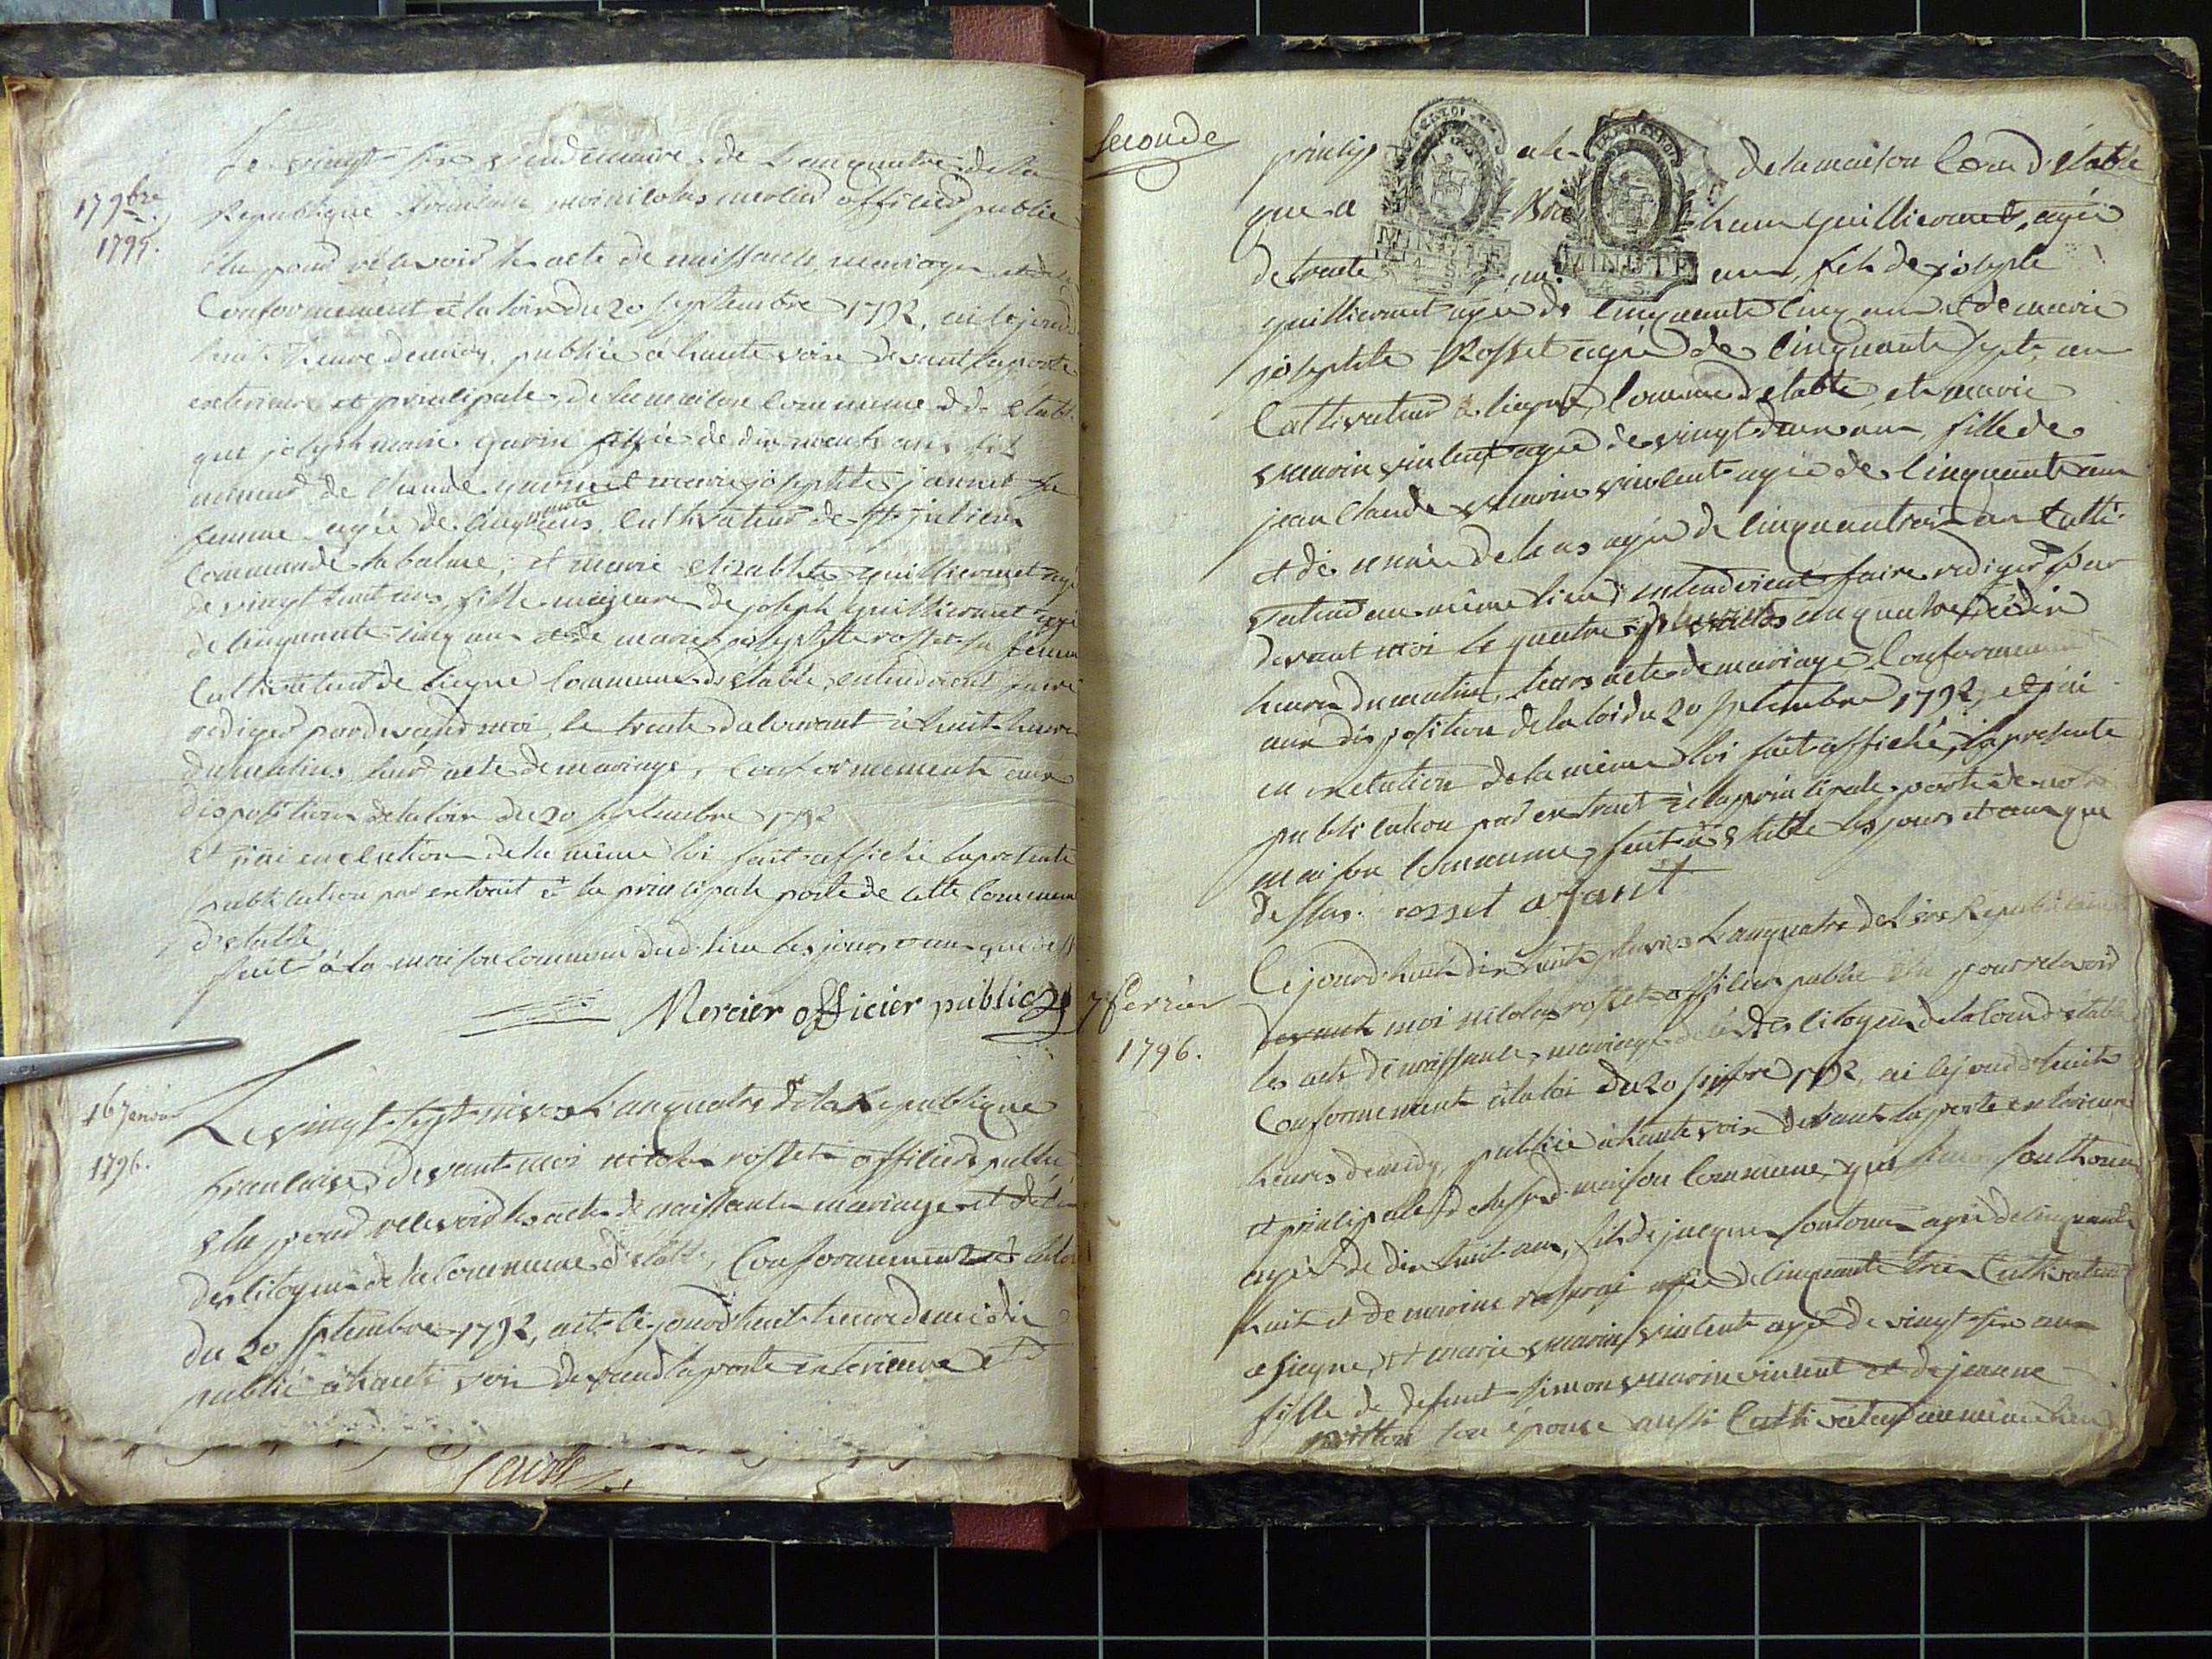 17 9bre
1795.
Le vingt six vendemaire de L'an quatre de la
Republique francaise moi nicolas mercier officier public
elu pour recevoir les acte de naissance, mariages et de
Conformement a la loix du 20 septembre 1792, ai cejourd
huit heure de midy, publié à haute voix devant la porte
exterieure et principale de la maison Commune d'Etable
que joseph marie garin agée de dix neuf ans fils
mineur de Claude garin et marie josephte jannet sa
femme agée de cinquante ans, Cultivateur de st julien
Commune de la balme; et marie elizabhte guilliermet agé
de vingt huit ans, fille majeure de joseph guilliermet agé
de cinquante cinq ans et de marie josephte rosset sa femme
Cultivateur de liegne Commune d'Etable, entendroient faire
rediger pardevand moi, le trente du Courant à huit heure
du matins leur acte de mariage, Conformement aux
disposition de la loix du 20 septembre 1792
et j'ai en execution de la même loi fait affiché la presente
publication par extrait à la principale porte de cette Commune
d'etable,
fait à la maison Commune dud. lieu les jours et an que dess
Mercier officier public
16 janvier
1796.
Le vingt sept nivos L'an quatre de la Republique
francaise, devant moi nicolas rosset officier public
elu pour recevoir les acte de naissance mariage et décé
des citoyens de la Commune d'etable, Conformement à la loi
du 20 septembre 1792, ai cejourdhuit heure de midi
publié à haute voix devand la porte exterieure et
Seconde
princip ale de la maison Com d'étable
que a Guilliermet, agée
de trente ans, fils de joseph
guilliermet agée de cinquante cinq ans et de marie
josephte Rosset agée de cinquante sept an
Cultivateur a liegne, Commune d'etable, et marie
vuarin vincent agée de vingt deux ans, fille de
jean Claude vuarin vincent agée de cinquante ans
et de agée de cinquantrois an Culti-
vateur au même lieu, entendroient faire rediger par
devant moi le quatre an quatre à dix
heures du matin, leurs acte de mariage Conformement
aux disposition de la loi du 20 septembre 1792, et j'ai
en execution de la même loi fait affiché, la presente
publication par extrait à la principale porte de notre
maison Commune, fait à Etable les jours et an que
dessus. rosset
7 fevrier
1796.
Cejourd'huit dix huit pluvios L'an quatre de l'ere Republicaine
devant moi nicolas rosset officier public elu pour recevoir
les acte de naissance, mariage décé des citoyens de la Com d'etable
Conformement à la loi du 20 septbre 1792, ai cejourd'huit
heures de midy, publié à haute voix devant la porte exterieure
et principale de maison Commune, que
agée de dix huit ans, fils de jacque agée de cinquante
huit et de marine agée de cinquante trois Cultivateur
a liegne, et marie vuarin vincent agée de vingt six ans
fille de defunt simon vuarin vincent et de jeanne
son épouse aussi Cultivateur au même lieu